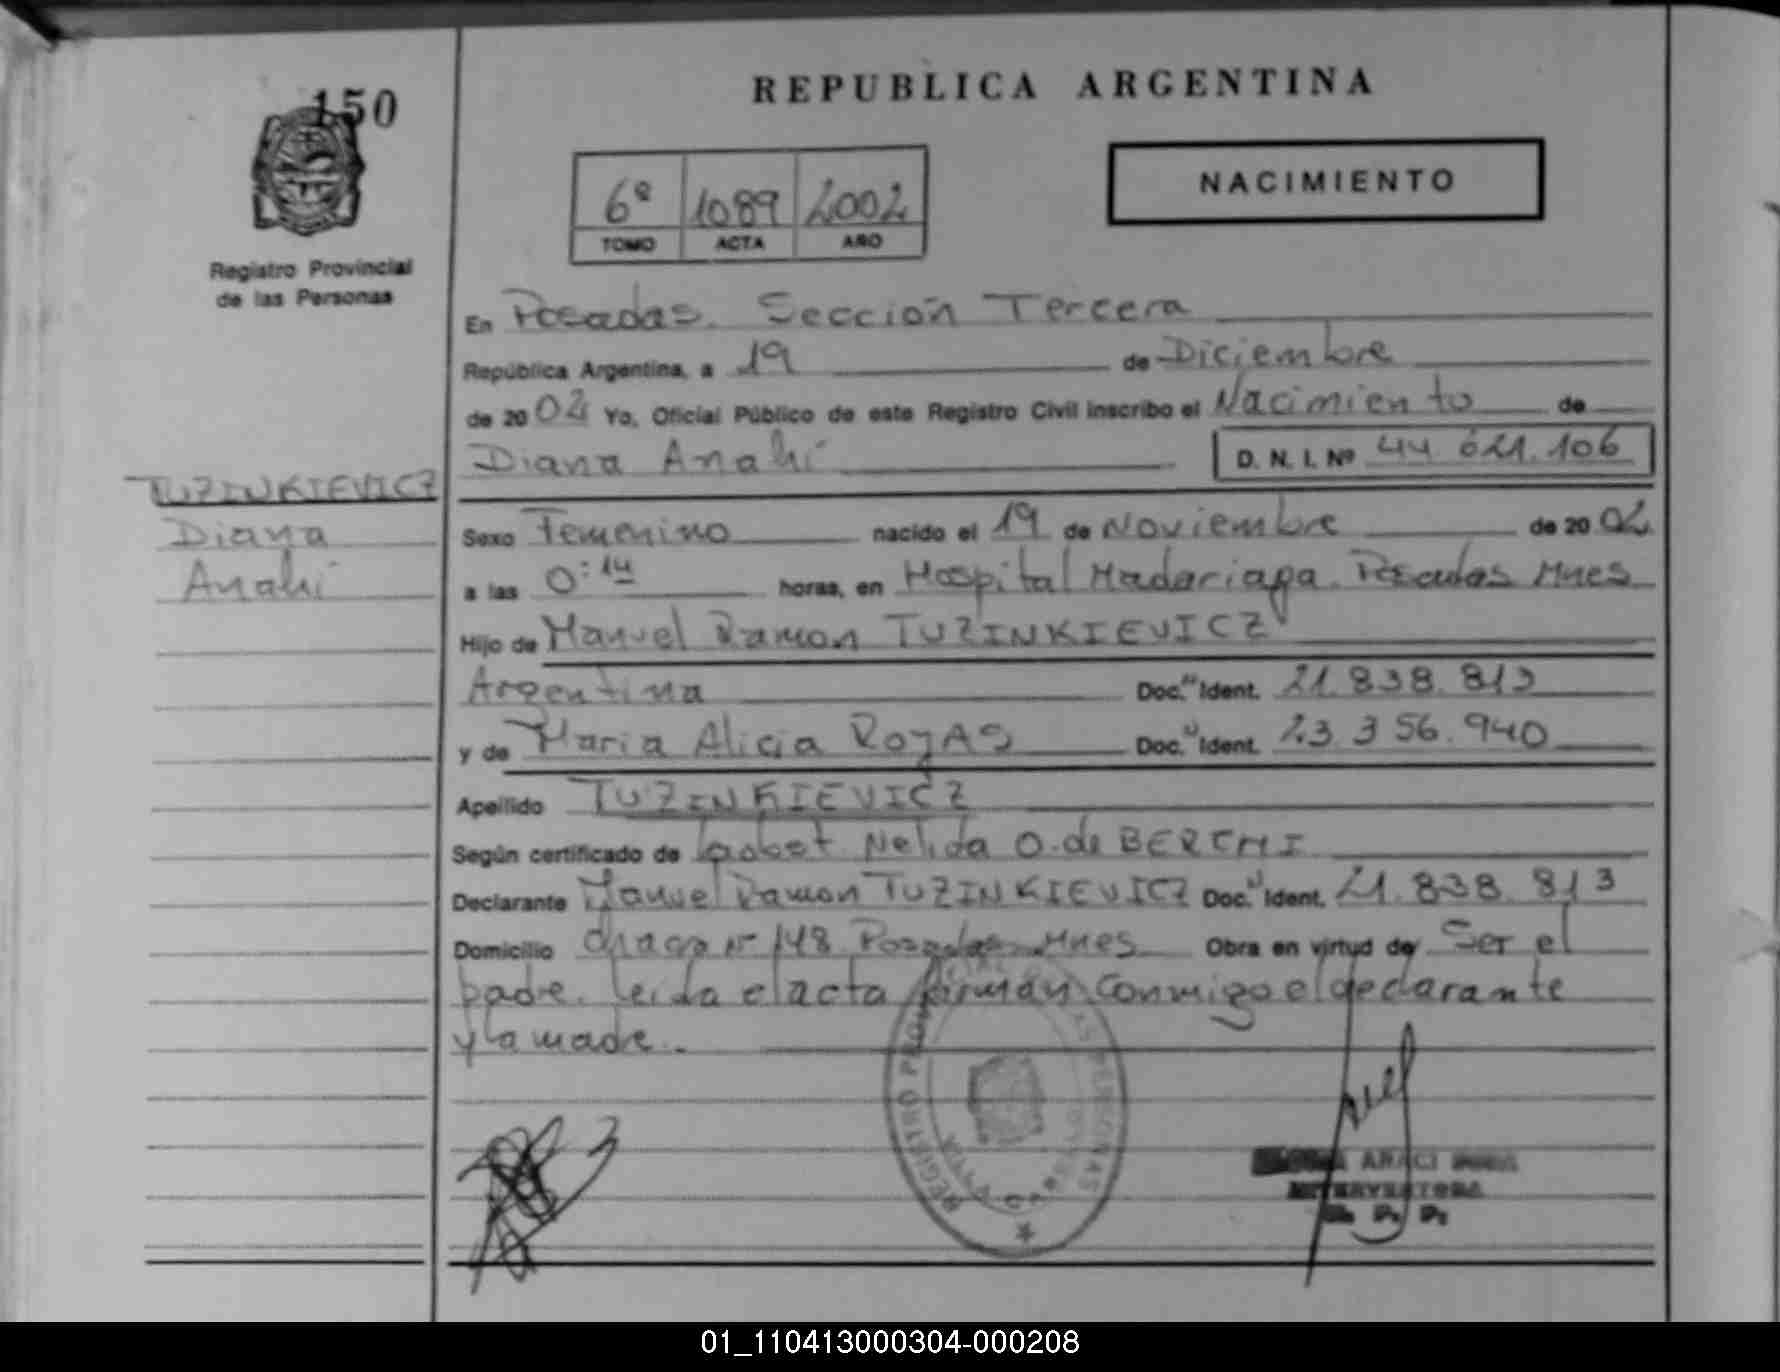 150
REPUBLICA ARGENTINA
NACIMIENTO
6º 1089 2002
TOMO ACTA AÑO
Registro Provincial
de las Personas
En Posadas. Sección Tercera
República Argentina, a 19 de Diciembre
de 2002 Yo, Oficial Público de este Registro Civil inscribo el Nacimiento de
Diana Anahí D. N. I. Nº 44 621.106
TUZINKIEVICZ
Diana
Anahí
Sexo Femenino nacido el 19 de Noviembre de 2002
a las 0:14 horas, en Hospital Madariaga. Posadas Mnes
Hijo de Manuel Ramon TUZINKIEVICZ
Argentina Doc. Ident. 21.838.813
y de Maria Alicia ROJAS Doc. Ident. 23.356.940
Apellido TUZINKIEVICZ
Según certificado de Nelida O. de
Declarante Manuel Ramon TUZINKIEVICZ Doc. Ident. 21.838.813
Domicilio Chaco Nº 148 Posadas Mnes Obra en virtud de Ser el
padre. leida el acta firman conmigo el declarante
y la madre.
REGISTRO PERSONAS
ARACI
INTERVENTORA
01_110413000304-000208